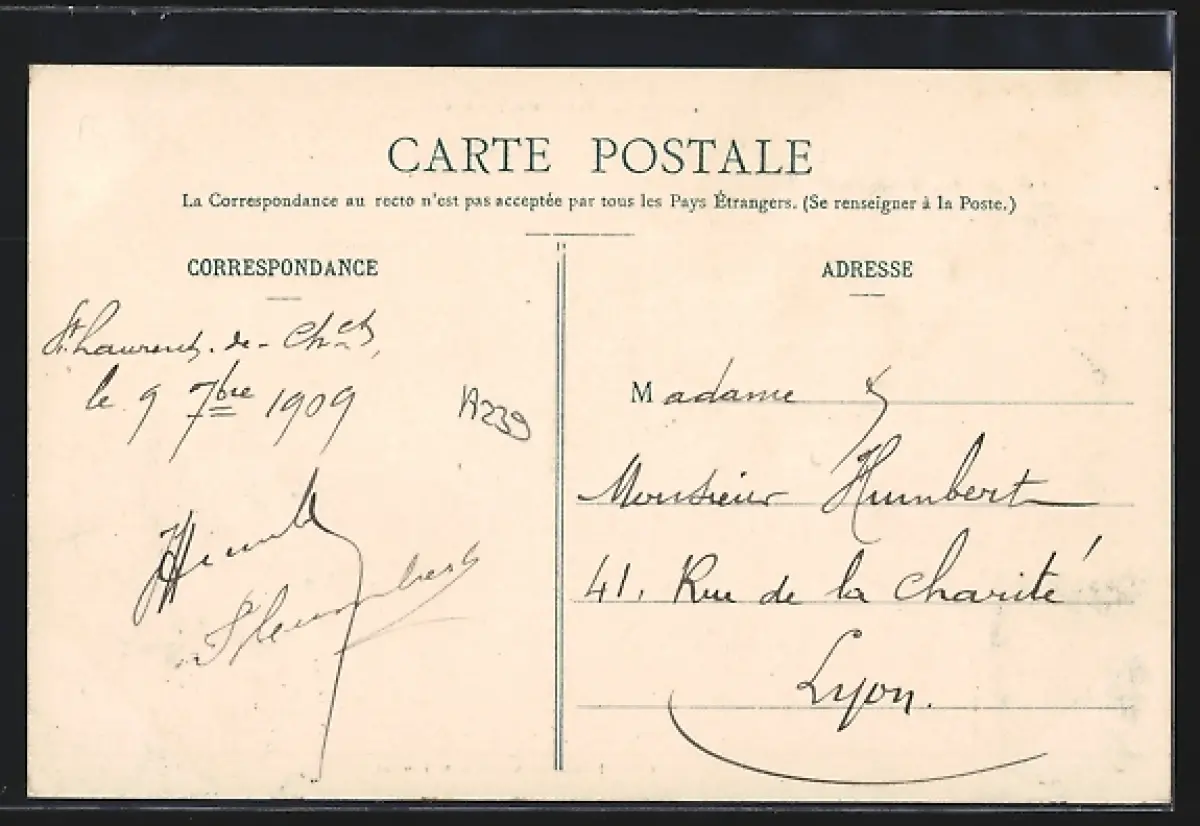 CARTE POSTALE
La Correspondance au recto n'est pas acceptée par tous les Pays Étrangers. (Se renseigner à la Poste.)
CORRESPONDANCE
St. Laurent. de-
le 9 7bre 1909
A239
Humbert
ADRESSE
Madame &
Monsieur Humbert
41. Rue de la Charité
Lyon.